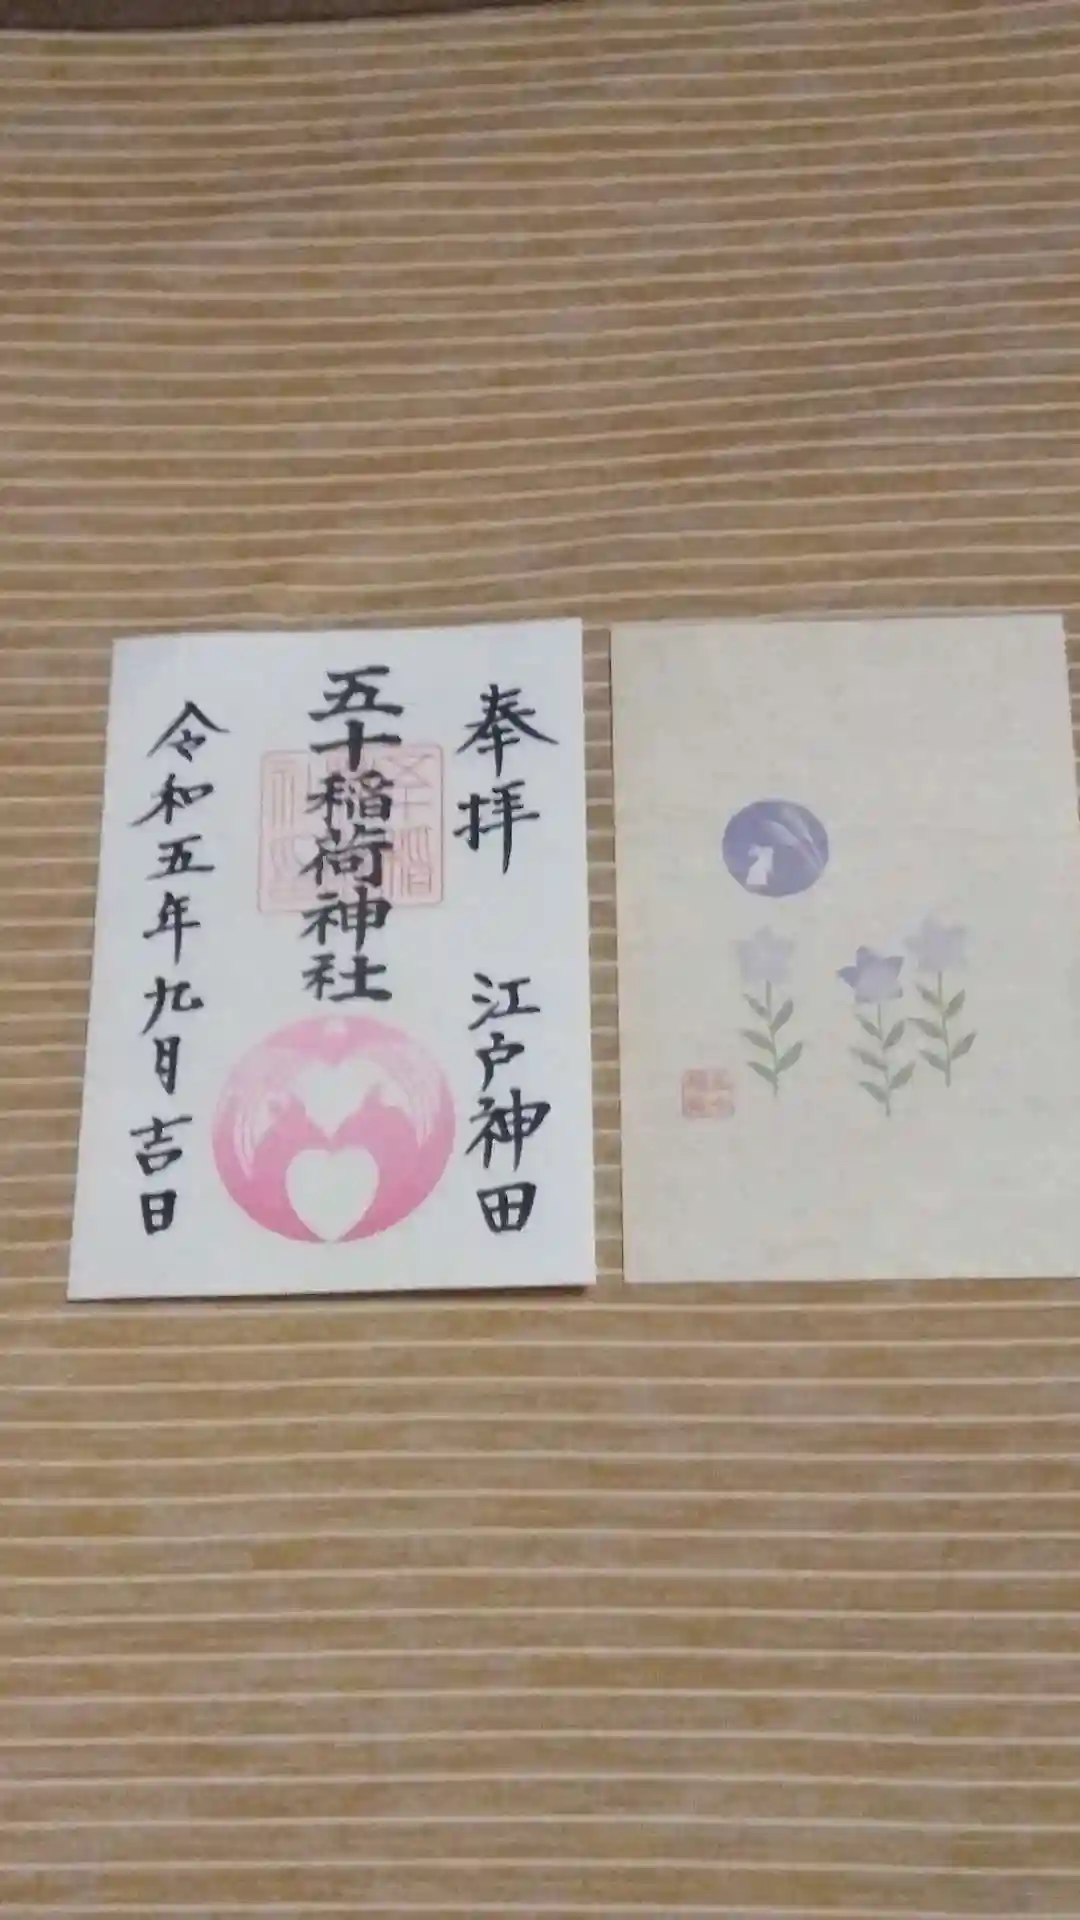 奉拝 江戸神田
五十稲荷神社
令和五年九月吉日